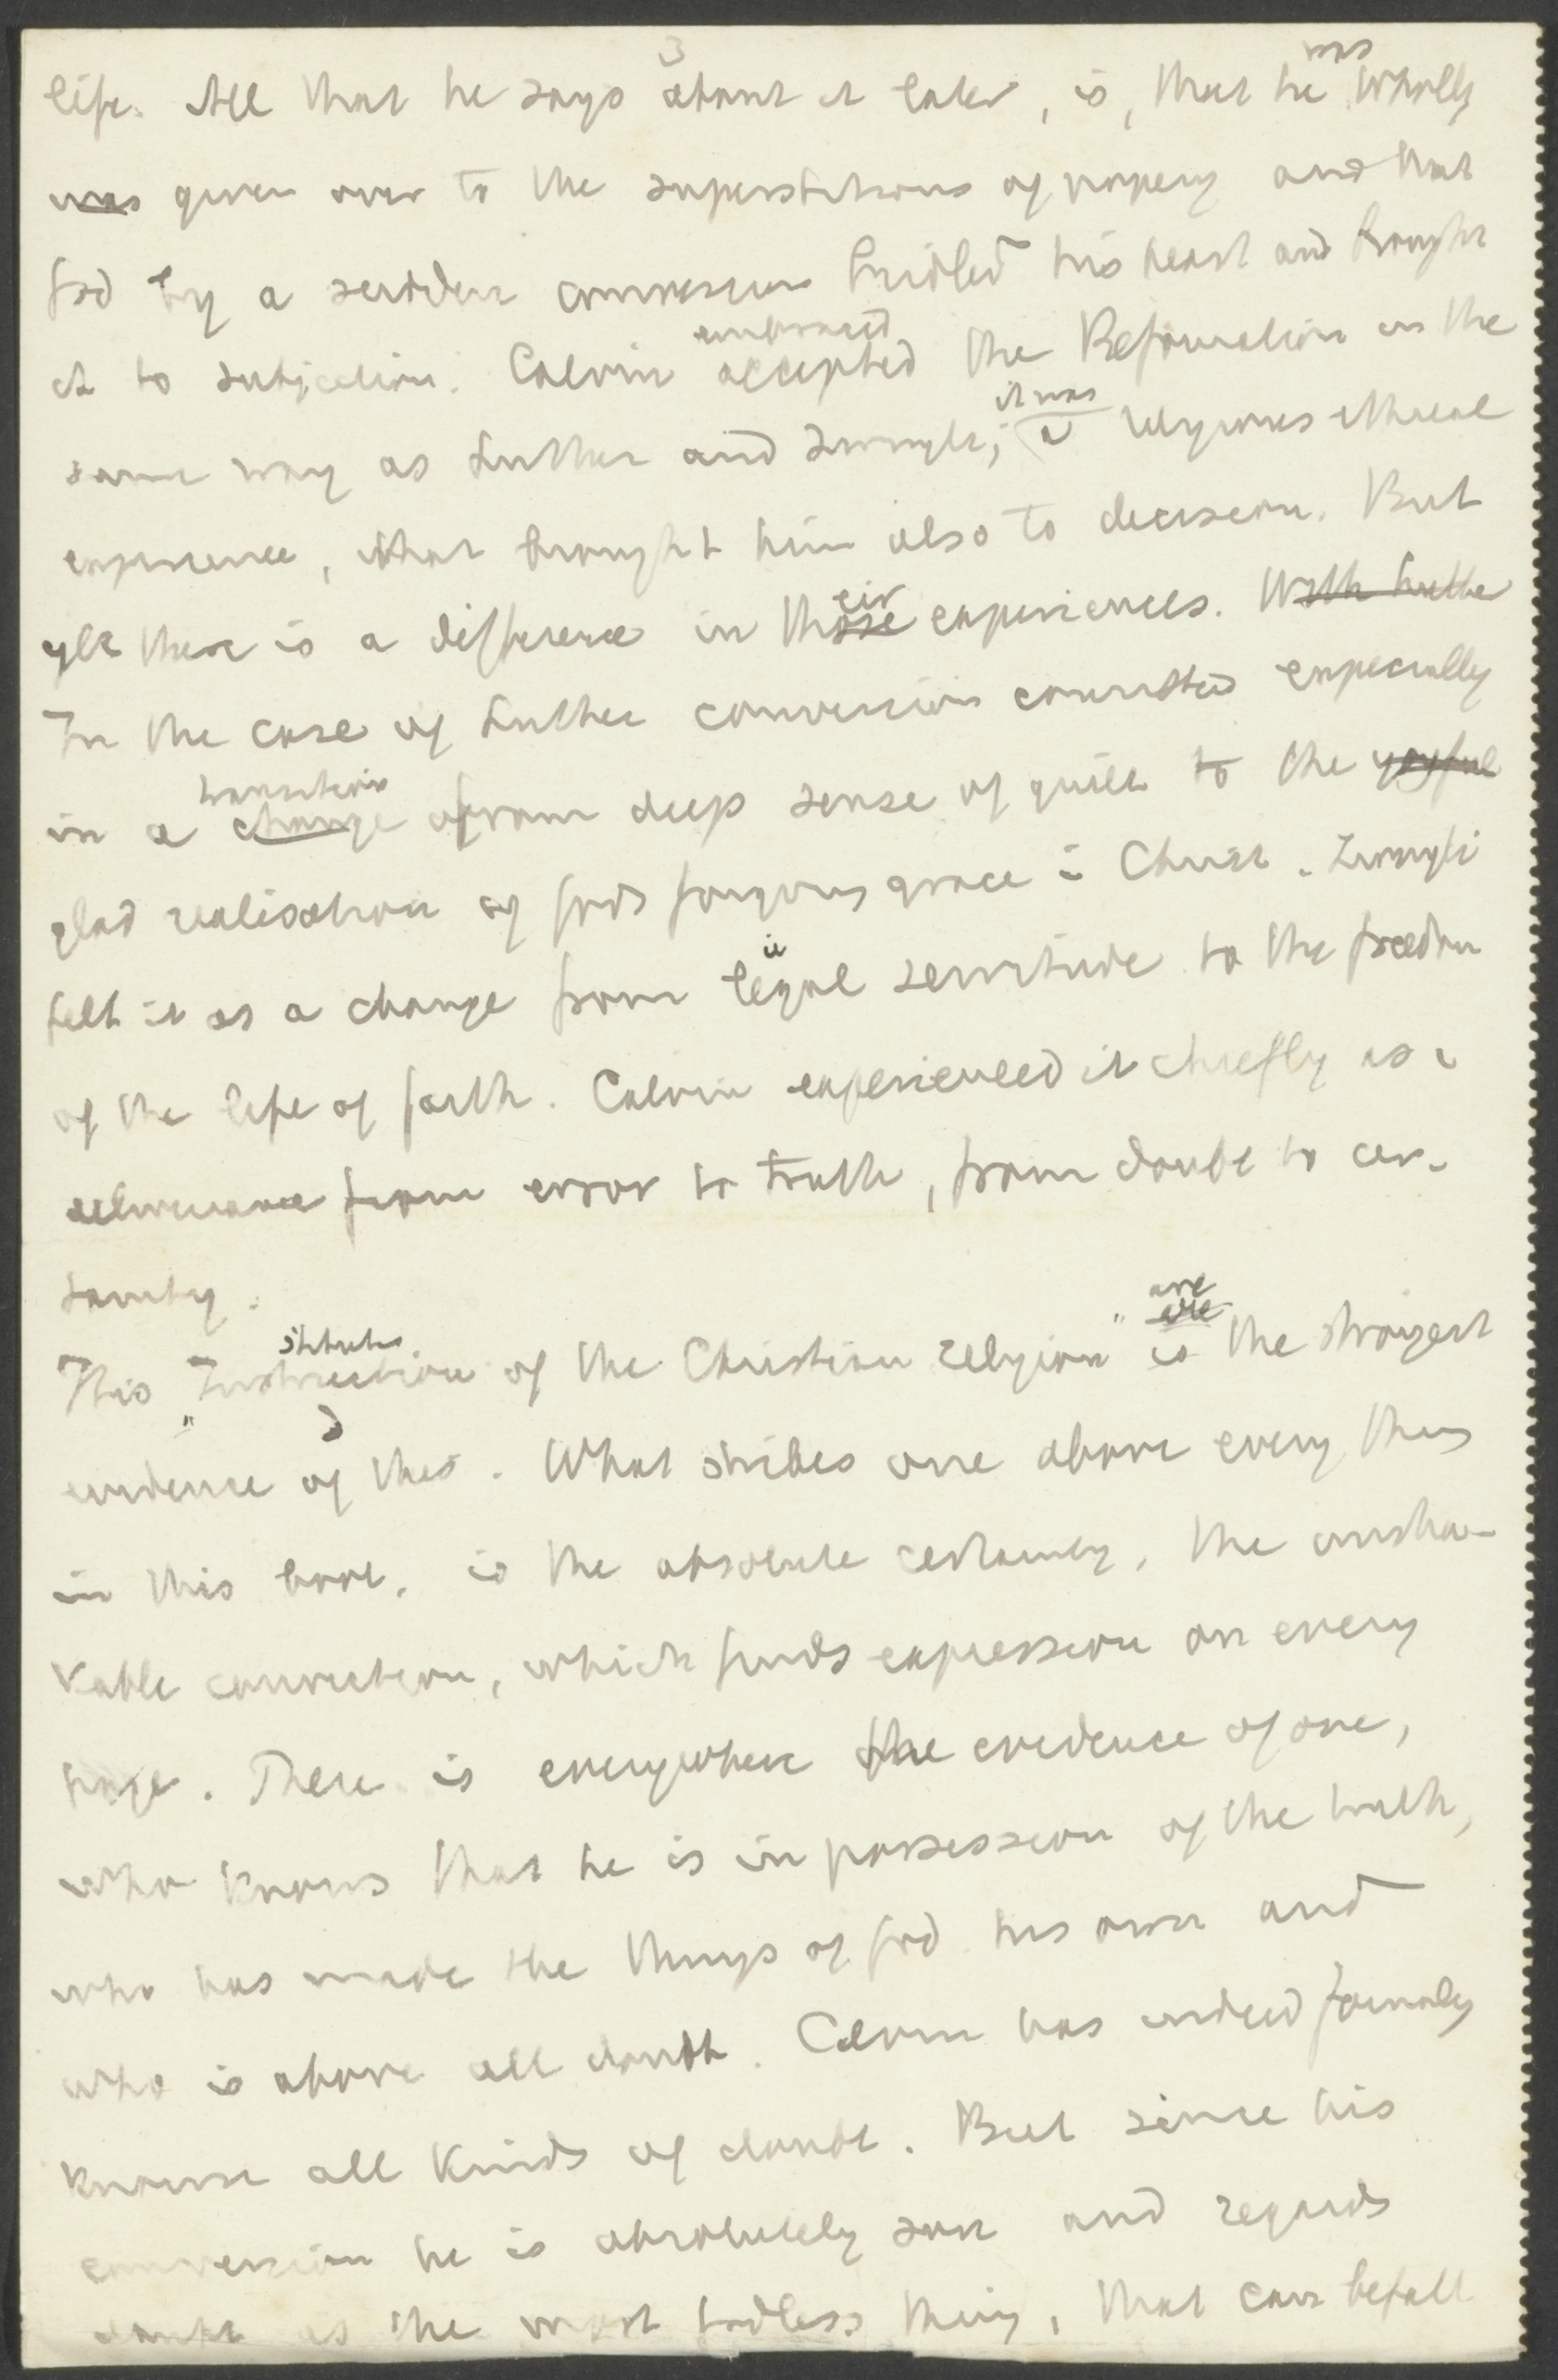 3
life. All that he says about it later, is, that he was wholly
was given over to the superstitions of popery and that
God by a sudden conversion bridled his heart and brought
it to subjection. Calvin embraced accepted the Reformation in the
same way as Luther and Zwingli; it was a religious ethical
experience, that brought him also to decision. But
yet there is a difference in those their experiences. With Luther
In the case of Luther conversion consisted especially
in a change transition from deep sense of guilt to the joyful
glad realisation of Gods forgiving grace in Christ. Zwingli
felt it as a change from legal servitude to the freedom
of the life of faith. Calvin experienced it chiefly as a
deliverance from error to truth, from doubt to cer-
tainty.
This "Instruction stitutes of the Christian religion" is are the strongest
evidence of this. What strikes one above every thing
in this book, is the absolute certainty, the unsha-
kable conviction, which finds expression on every
page. There is everywhere the evidence of one,
who knows that he is in possession of the truth,
who has made the things of God his own and
who is above all doubt. Calvin has indeed formerly
known all kinds of doubt. But since his
conversion he is absolutely sure and regards
doubt as the most Godless thing, that can befall